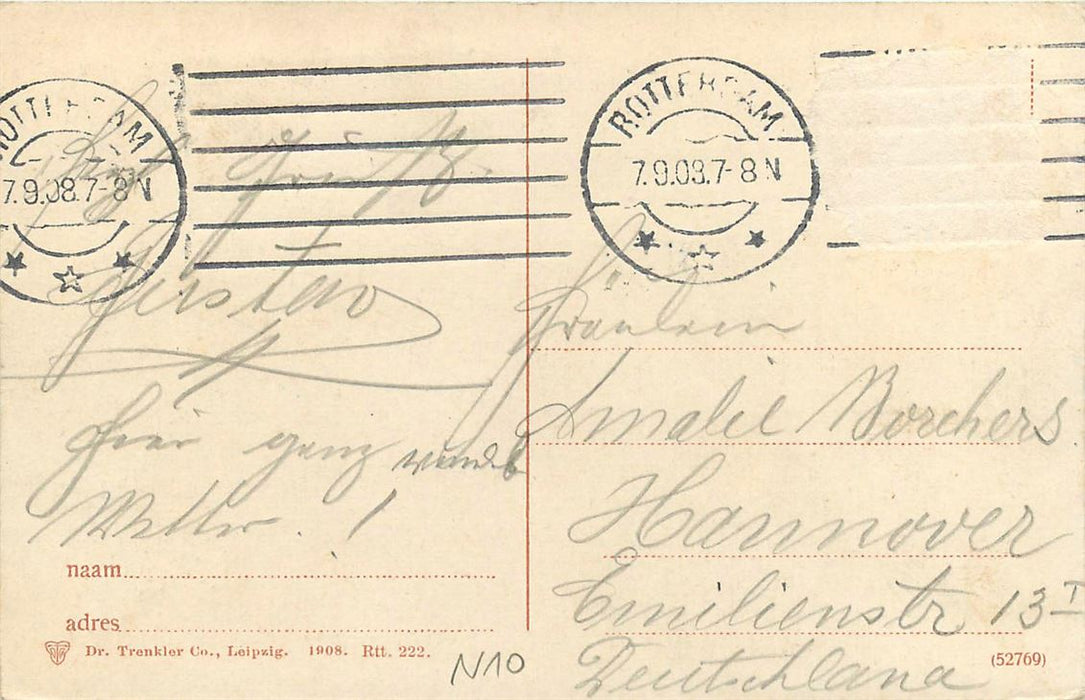 ROTTERDAM
7.9.08.7-8 N
Hzl. Gruß
Gustav
Hier ganz wundb
Wetter. !
naam
adres
Dr. Trenkler Co., Leipzig. 1908. Rtt. 222.
N10
ROTTERDAM
7.9.08.7-8 N
Fräulein
Amalie Borchers
Hannover
Emilienstr 13 I
Deutschland
(52769)